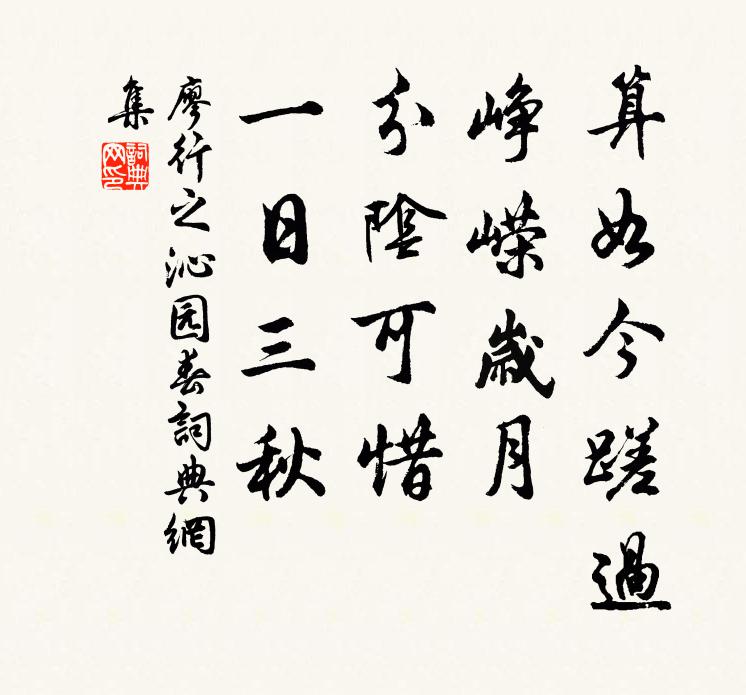 算如今蹉過
崢嶸歲月
分陰可惜
一日三秋
廖行之沁园春詞典網
集
詞典
网印